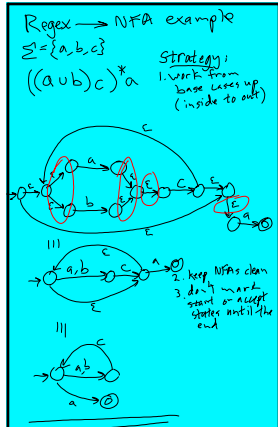 Regex → NFA example
Σ = {a, b, c}
((a∪b)c)*a
Strategy:
1. work from
base cases up
(inside to out)
ε
ε
ε
a
ε
ε
c
ε
ε
b
ε
ε
ε
a
|||
ε
a,b
c
a
ε
2. keep NFAs clean
3. don't mark
start or accept
states until the
end
|||
c
a,b
a